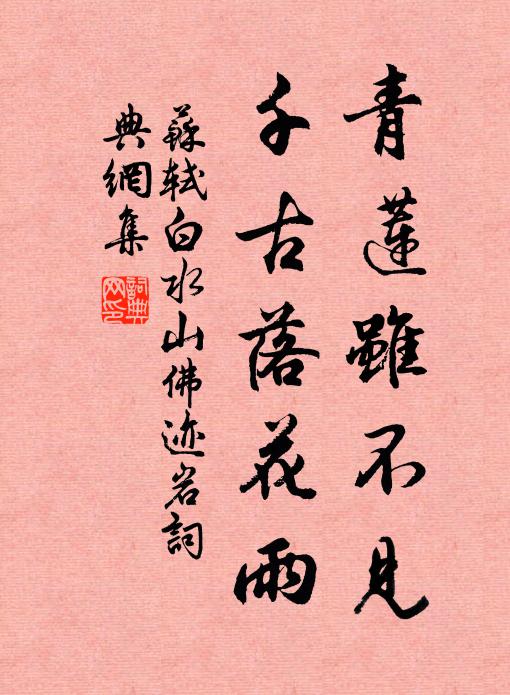 青蓮雖不見
千古落花雨
蘇軾白水山佛迹岩詞
典網集
詞典
网印